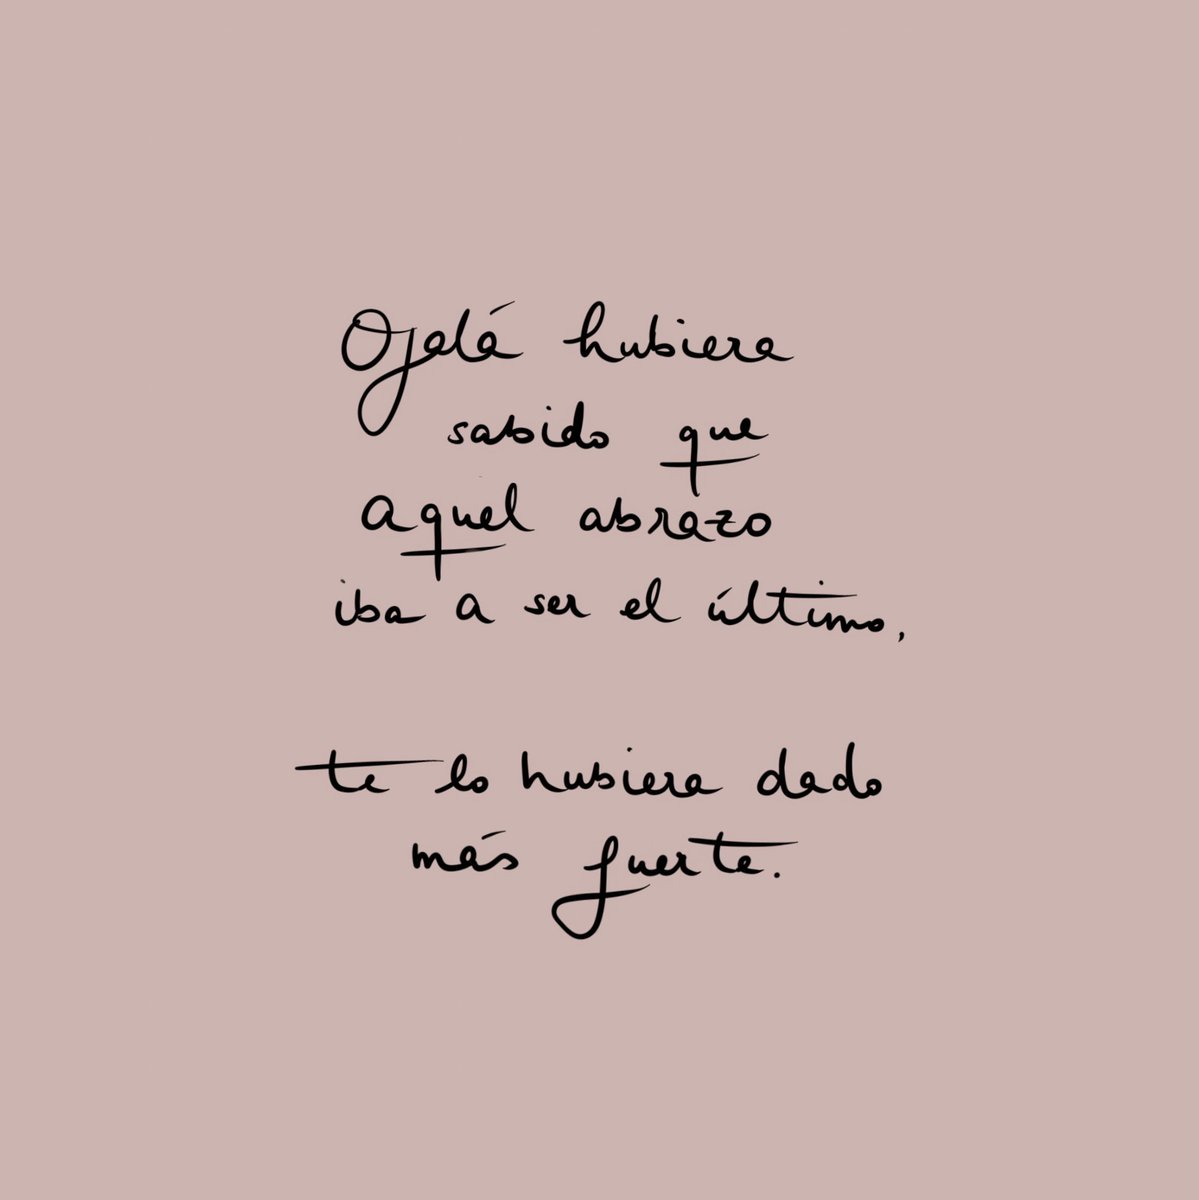 Ojalá hubiera
sabido que
aquel abrazo
iba a ser el último,
te lo hubiera dado
más fuerte.